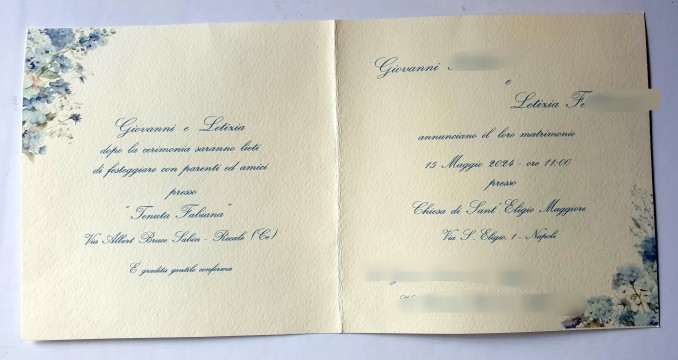 Giovanni e Letizia
dopo la cerimonia saranno lieti
di festeggiare con parenti ed amici
presso
"Tenuta Fabiana"
Via Albert Bruce Sabin - Recale (Ce)
E' gradita gentile conferma
Giovanni
e
Letizia F
annunciano il loro matrimonio
15 Maggio 2024 - ore 11:00
presso
Chiesa di Sant' Eligio Maggiore
Via S. Eligio, 1 - Napoli